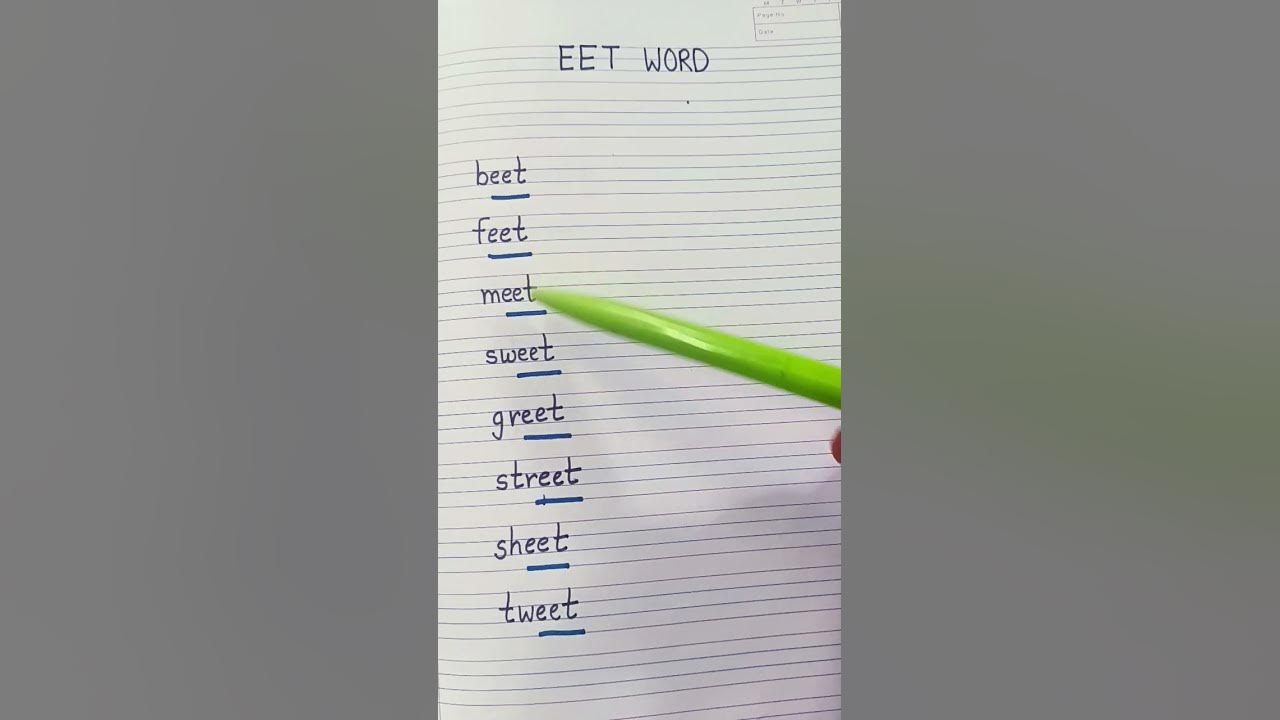 Page No.
Date
EET WORD
beet
feet
meet
sweet
greet
street
sheet
tweet